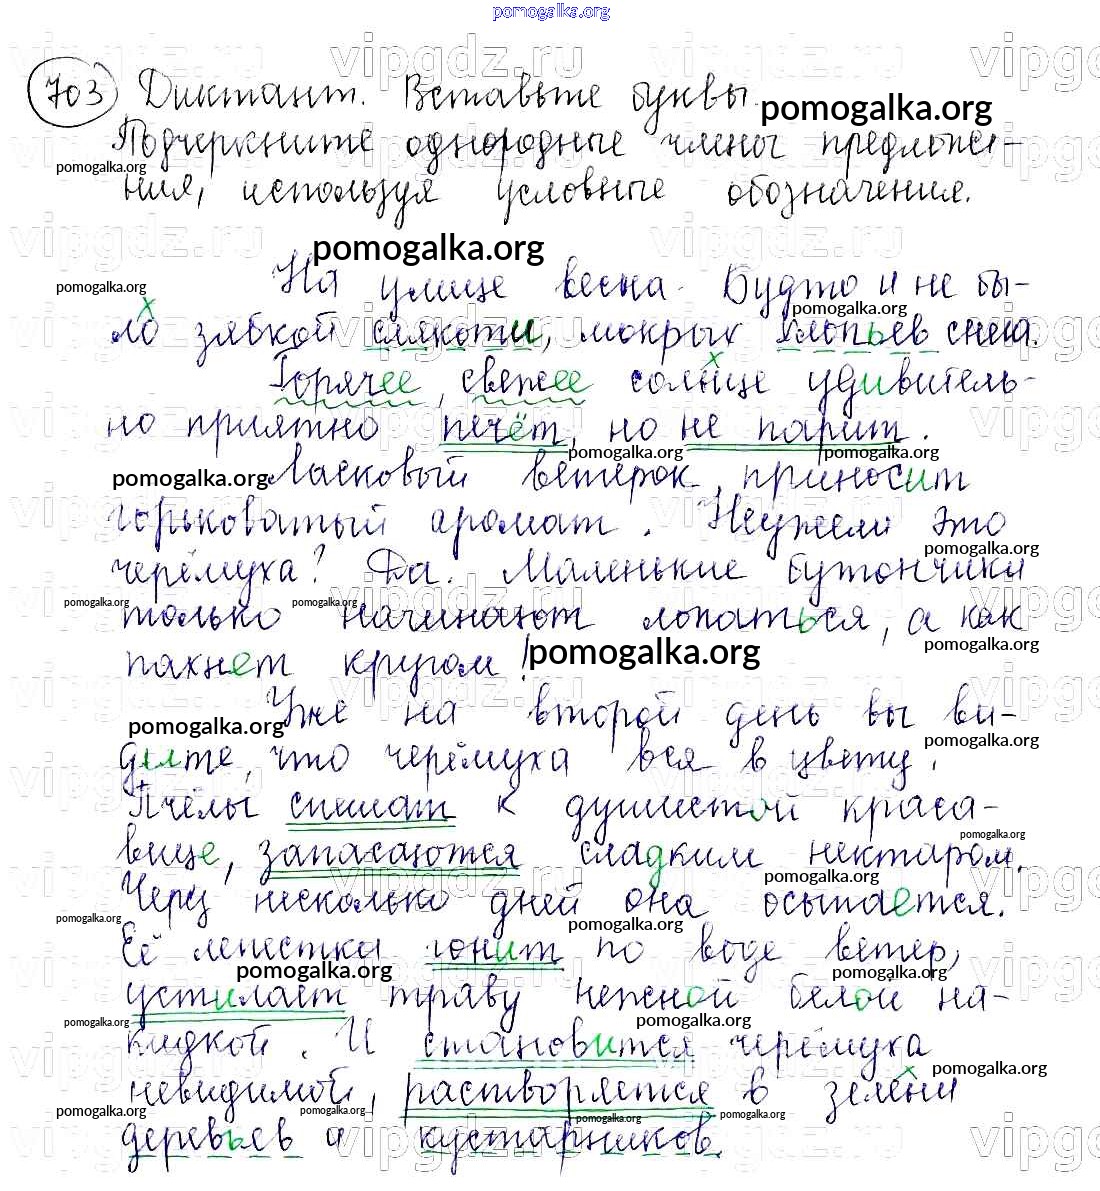 pomogalka.org
703 Диктант. Вставьте буквы.
Подчеркните однородные члены предложе-
ния, используя условные обозначения.
На улице весна. Будто и не бы-
ло зябкой слякоти, мокрых хлопьев снега.
Горячее, свежее солнце удивитель-
но приятно печёт, но не парит.
Ласковый ветерок приносит
горьковатый аромат. Неужели это
черёмуха? Да. Маленькие бутончики
только начинают лопаться, а как
пахнет кругом!
Уже на второй день вы ви-
дите, что черёмуха вся в цвету.
Пчёлы спешат к душистой краса-
вице, запасаются сладким нектаром.
Через несколько дней она осыпается.
Её лепестка гонит по воде ветер,
устилает траву нежной белой на-
кидкой. И становится черёмуха
невидимой, растворяется в зелени
деревьев и кустарников.